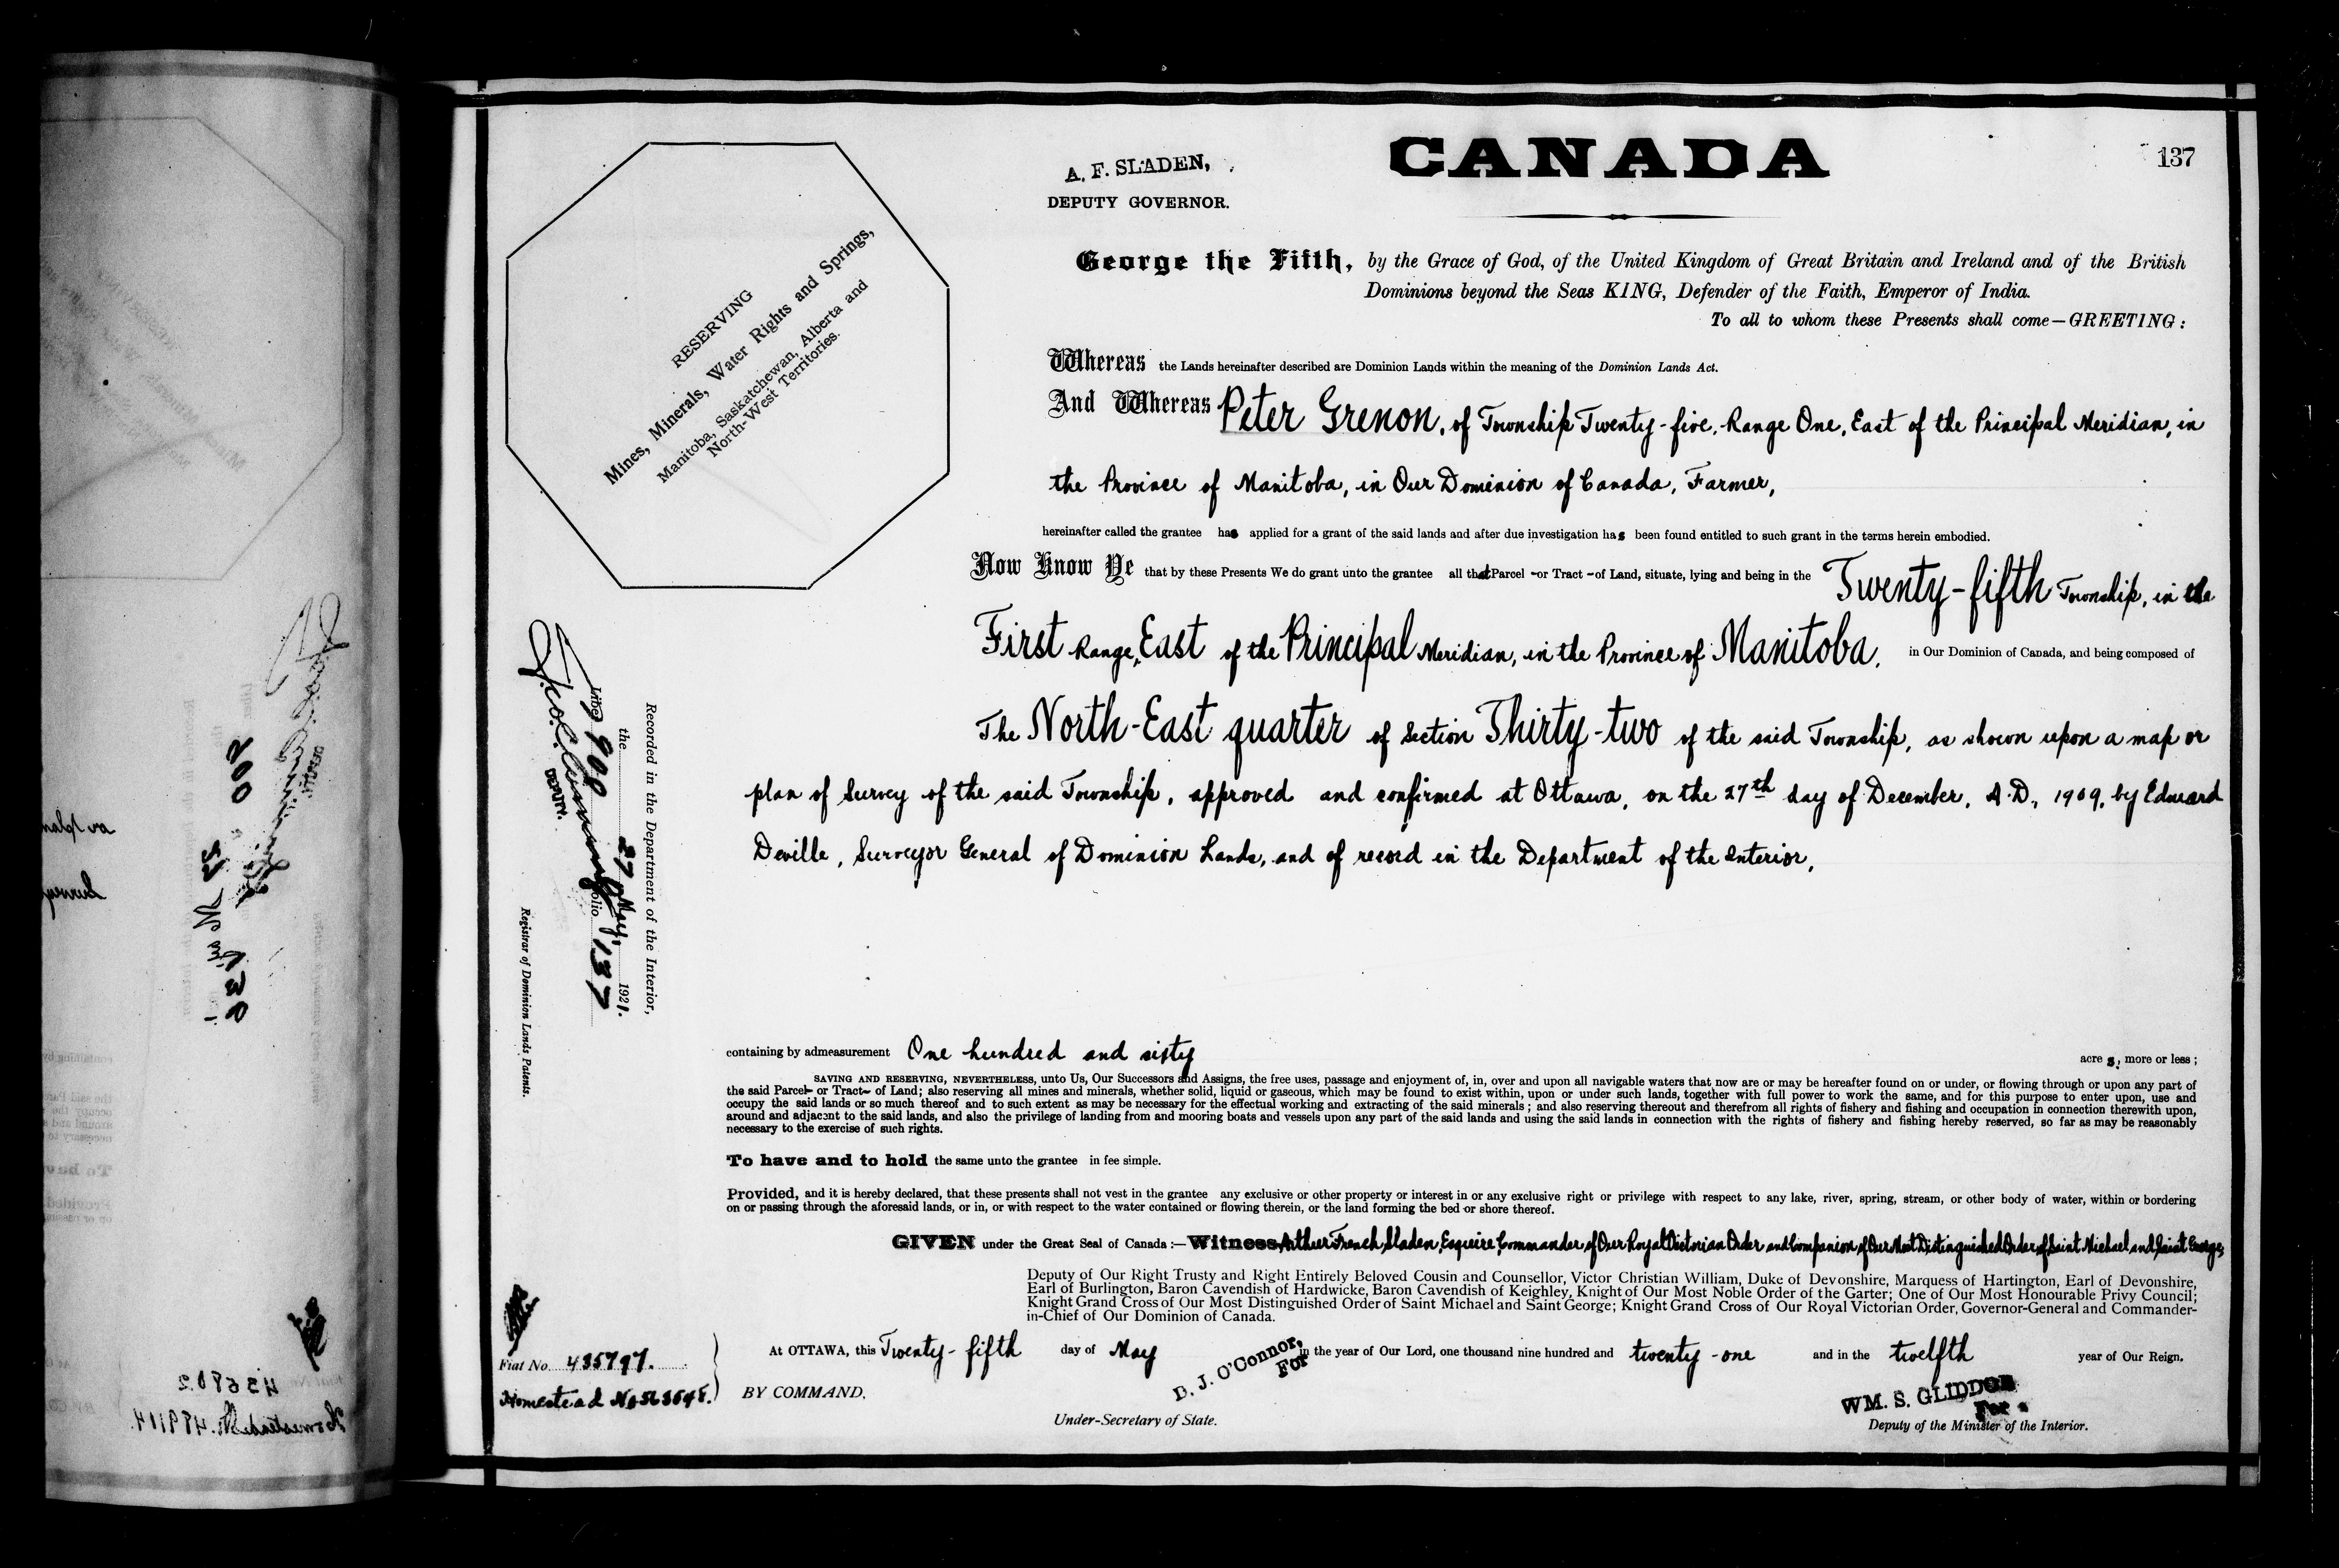 CANADA
137
A. F. SLADEN,
DEPUTY GOVERNOR.
RESERVING
Mines, Minerals, Water Rights and Springs,
Manitoba, Saskatchewan, Alberta and
North-West Territories.
George the Fifth, by the Grace of God, of the United Kingdom of Great Britain and Ireland and of the British
Dominions beyond the Seas KING, Defender of the Faith, Emperor of India.
To all to whom these Presents shall come—GREETING:
Whereas the Lands hereinafter described are Dominion Lands within the meaning of the Dominion Lands Act.
And Whereas Peter Grenon, of Township Twenty-five, Range One, East of the Principal Meridian, in
the Province of Manitoba, in Our Dominion of Canada, Farmer,
hereinafter called the grantee has applied for a grant of the said lands and after due investigation has been found entitled to such grant in the terms herein embodied.
Now Know Ye that by these Presents We do grant unto the grantee all that Parcel or Tract of Land, situate, lying and being in the Twenty-fifth Township, in the
First Range, East of the Principal Meridian, in the Province of Manitoba, in Our Dominion of Canada, and being composed of
The North-East quarter of Section Thirty-two of the said Township, as shown upon a map or
plan of Survey of the said Township, approved and confirmed at Ottawa, on the 27th day of December, A.D., 1909, by Edward
Deville, Surveyor General of Dominion Lands, and of record in the Department of the Interior,
Recorded in the Department of the Interior,
the 27 May, 1921.
Liber 900 Folio 137
DEPUTY.
Registrar of Dominion Lands Patents.
containing by admeasurement One hundred and sixty acres, more or less;
SAVING AND RESERVING, NEVERTHELESS, unto Us, Our Successors and Assigns, the free uses, passage and enjoyment of, in, over and upon all navigable waters that now are or may be hereafter found on or under, or flowing through or upon any part of
the said Parcel or Tract of Land; also reserving all mines and minerals, whether solid, liquid or gaseous, which may be found to exist within, upon or under such lands, together with full power to work the same, and for this purpose to enter upon, use and
occupy the said lands or so much thereof and to such extent as may be necessary for the effectual working and extracting of the said minerals; and also reserving thereout and therefrom all rights of fishery and fishing and occupation in connection therewith upon,
around and adjacent to the said lands, and also the privilege of landing from and mooring boats and vessels upon any part of the said lands and using the said lands in connection with the rights of fishery and fishing hereby reserved, so far as may be reasonably
necessary to the exercise of such rights.
To have and to hold the same unto the grantee in fee simple.
Provided, and it is hereby declared, that these presents shall not vest in the grantee any exclusive or other property or interest in or any exclusive right or privilege with respect to any lake, river, spring, stream, or other body of water, within or bordering
on or passing through the aforesaid lands, or in, or with respect to the water contained or flowing therein, or the land forming the bed or shore thereof.
GIVEN under the Great Seal of Canada:—Witness Arthur French Sladen, Esquire, Commander of Our Royal Victorian Order and Companion of Our Most Distinguished Order of Saint Michael and Saint George,
Deputy of Our Right Trusty and Right Entirely Beloved Cousin and Counsellor, Victor Christian William, Duke of Devonshire, Marquess of Hartington, Earl of Devonshire,
Earl of Burlington, Baron Cavendish of Hardwicke, Baron Cavendish of Keighley, Knight of Our Most Noble Order of the Garter; One of Our Most Honourable Privy Council;
Knight Grand Cross of Our Most Distinguished Order of Saint Michael and Saint George; Knight Grand Cross of Our Royal Victorian Order, Governor-General and Commander-
in-Chief of Our Dominion of Canada.
At OTTAWA, this Twenty-fifth day of May in the year of Our Lord, one thousand nine hundred and twenty-one and in the twelfth year of Our Reign.
Fiat No. 435797.
Homestead No
BY COMMAND.
D. J. O'Connor,
For
Under-Secretary of State.
WM. S. GLIDDON
For
Deputy of the Minister of the Interior.